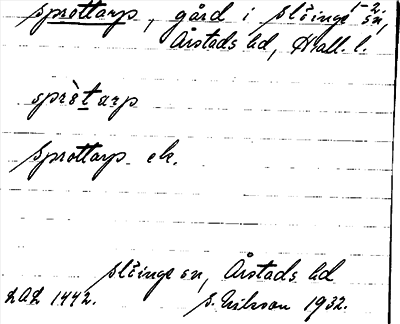 Sprottarp, gård i Slöinge 1-2. sn,
Årstads hd, Hall. l.
sprò̀tarp
Sprottarp ek.
Slöinge sn, Årstads hd
LAL 1442. S. Nilsson 1932.